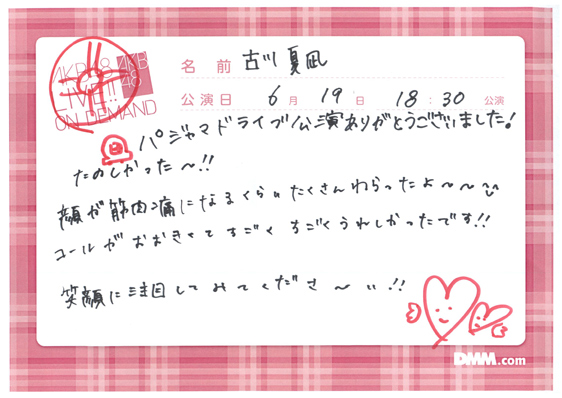 AKB48
LIVE!!
ON DEMAND
AKB
48
名前 古川夏凪
公演日 6月19日 18:30公演
パジャマドライブ公演ありがとうございました!
たのしかった〜!!
顔が筋肉痛になるくらいたくさんわらったよ〜〜
コールがおおきくてすごくすごくうれしかったです!!
笑顔に注目してみてくださ〜い!!
DMM.com